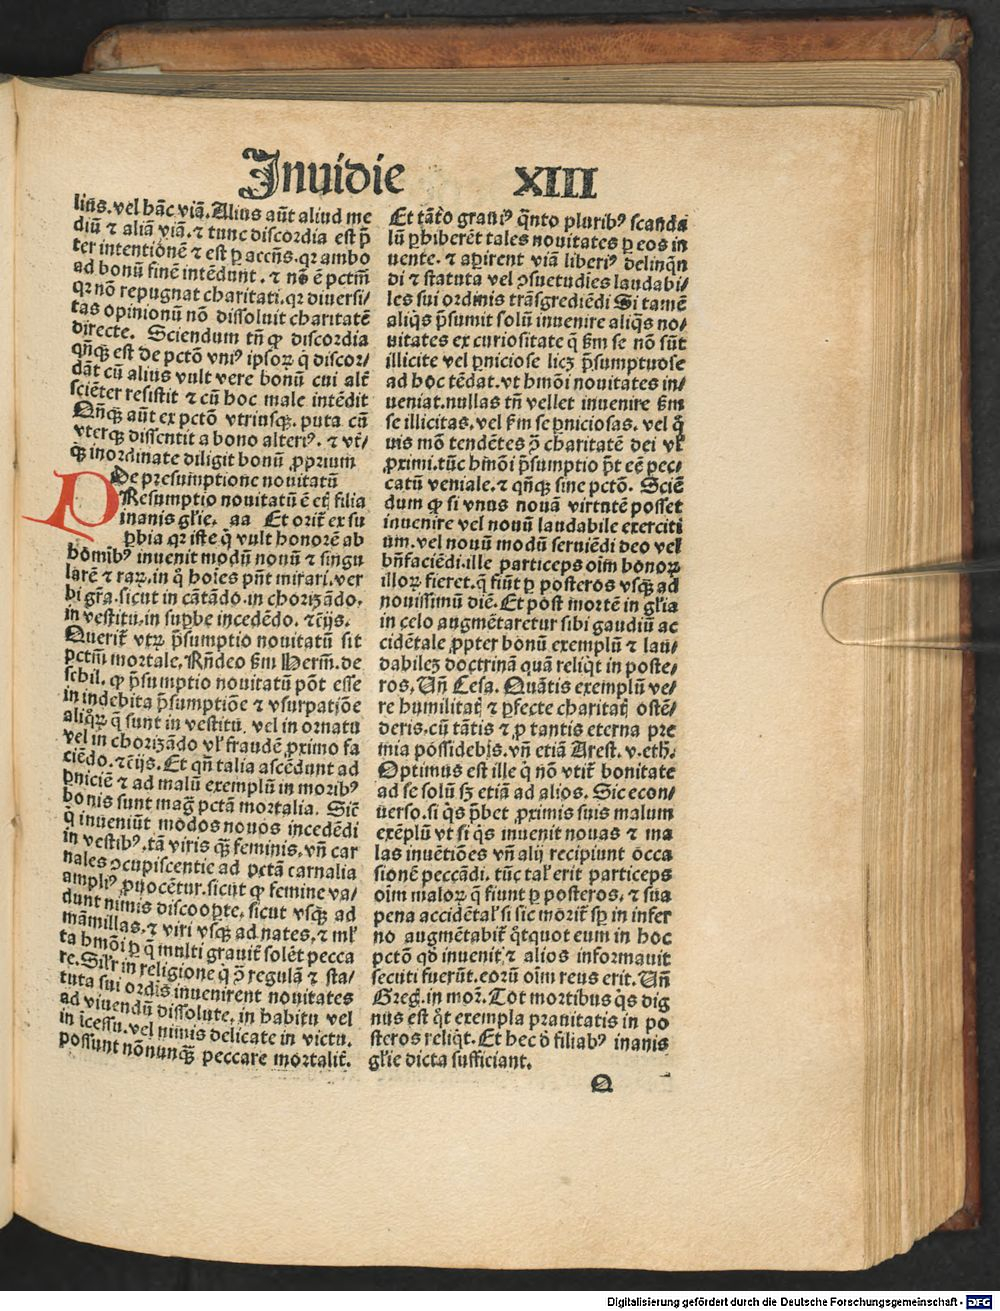 Inuidie XIII
lius. vel hãc viã. Alius aũt aliud me
diũ ⁊ aliã viã. ⁊ tunc discordia est p̃
ter intentionẽ ⁊ est ꝑ accñs. qꝛ ambo
ad bonũ finẽ intẽdunt. ⁊ nõ ẽ pctm̃
qꝛ nõ repugnat charitati. qꝛ diuersi/
tas opinionũ nõ dissoluit charitatẽ
directe. Sciendum tñ ꝙ discordia
qñꝗꝫ est de pctõ vniꝰ ipsoꝝ q̇ discor/
dãt cũ alius vult vere bonũ cui alt̃
sciẽter resistit ⁊ cũ hoc male intẽdit
Qñꝗꝫ aũt ex pctõ vtriusꝗꝫ. puta cũ
vterꝗꝫ dissentit a bono alteriꝰ. ⁊ vt̃/
ꝗꝫ inordinate diligit bonũ ꝓprium
De presumptione nouitatũ
PResumptio nouitatũ ẽ etiã filia
inanis gl̃ie. aa Et orit̃ ex su
ꝑbia qꝛ iste q̇ vult honorẽ ab
homibꝰ inuenit modũ nouũ ⁊ singu
larẽ ⁊ raꝝ. in q̊ hoĩes pñt mirari. ver
bi gr̃a. sicut in cãtãdo. in choriʒãdo.
in vestitu. in supbe incedẽdo. ⁊c̃ijs.
Querit̃ vtꝝ p̃sumptio nouitatũ sit
pctm̃ mortale. Rñdeo ẜm Herm̃. de
schil. ꝙ p̃sumptio nouitatũ põt esse
in indebita p̃sumptiõe ⁊ vsurpatiõe
aliq̊ꝝ q̃ sunt in vestitu. vel in ornatu
vel in choriʒãdo vl̃ fraudẽ ꝓximo fa
ciẽdo. ⁊c̃ijs. Et qñ talia ascẽdunt ad
ꝑniciẽ ⁊ ad malũ exemplũ in moribꝰ
bonis sunt mag̃ pctã mortalia. Sic̃
q̇ inueniũt modos nouos incedẽdi
in vestibꝰ. tã viris ꝗꝫ feminis. vñ car
nales ↄcupiscentie ad pctã carnalia
ampliꝰ ꝓuocẽtur. sicut ꝙ femine va/
dunt nimis discooꝑte. sicut vsꝗꝫ ad
mãmillas. ⁊ viri vsꝗꝫ ad nates. ⁊ ml̃
ta hmõi ꝑ q̃ multi grauit̃ solẽt pecca
re. Sil̃r in religione q̇ ↄ̃ regulã ⁊ sta/
tuta sui ordis inuenirent nouitates
ad viuendũ dissolute. in habitu vel
in ĩcessu. vel nimis delicate in victu.
possunt nõnunꝗꝫ peccare mortalit̃.
Et tãto grauiꝰ q̃nto pluribꝰ scanda
lũ ꝑhiberẽt tales nouitates ꝑ eos in
uente. ⁊ aꝑirent viã liberiꝰ delinq̃n
di ⁊ statuta vel ↄsuetudies laudabi/
les sui ordinis trãsgrediẽdi Si tamẽ
aliq̇s p̃sumit solũ inuenire aliq̃s no/
uitates ex curiositate q̃ ẜm se nõ sũt
illicite vel ꝑniciose licꝫ p̃sumptuose
ad hoc tẽdat. vt hmõi nouitates in/
ueniat. nullas tñ vellet inuenire ẜm
se illicitas. vel ẜm se ꝑniciosas. vel q̃
uis mõ tendẽtes ↄ̃ charitatẽ dei vl̃
ꝓximi. tũc hmõi p̃sumptio p̃t eẽ pec/
catũ veniale. ⁊ qñꝗꝫ sine pctõ. Sciẽ
dum ꝙ si vnus nouã virtutẽ posset
inuenire vel nouũ laudabile exerciti
um. vel nouũ modũ seruiẽdi deo vel
bñfaciẽdi. ille particeps oĩm bonoꝝ
illoꝝ fieret. q̃ fiũt ꝑ posteros vsꝗꝫ ad
nouissimũ diẽ. Et post mortẽ in gl̃ia
in celo augmẽtaretur sibi gaudiũ ac
cidẽtale ꝓpter bonũ exemplũ ⁊ lau/
dabilẽ doctrinã quã reliq̇t in poste/
ros. Uñ Cesa. Quãtis exemplũ ve/
re humilitatꝭ ⁊ ꝑfecte charitatꝭ ostẽ/
deris. cũ tãtis ⁊ ꝓ tantis eterna pre
mia possidebis. vñ etiã Arest. v. eth̃.
Optimus est ille q̇ nõ vtit̃ bonitate
ad se solũ ſꝫ etiã ad alios. Sic econ/
uerso. si q̇s p̃bet ꝓximis suis malum
exẽplũ vt si q̇s inuenit nouas ⁊ ma
las inuẽtiões vñ alij recipiunt occa
sionẽ peccãdi. tũc tal̃ erit particeps
oĩm maloꝝ q̃ fiunt ꝑ posteros. ⁊ sua
pena accidẽtal̃ si sic morit̃ sꝑ in infer
no augmẽtabit̃ q̊tquot eum in hoc
pctõ qḋ inuenit ⁊ alios informauit
secuti fuerũt. eorũ oĩm reus erit. Uñ
Greg̃. in moꝛ̃. Tot mortibus q̇s dig
nus est q̊t exempla prauitatis in po
steros reliq̇t. Et hec ḋ filiabꝰ inanis
gl̃ie dicta sufficiant.
Q
Digitalisierung gefördert durch die Deutsche Forschungsgemeinschaft - DFG